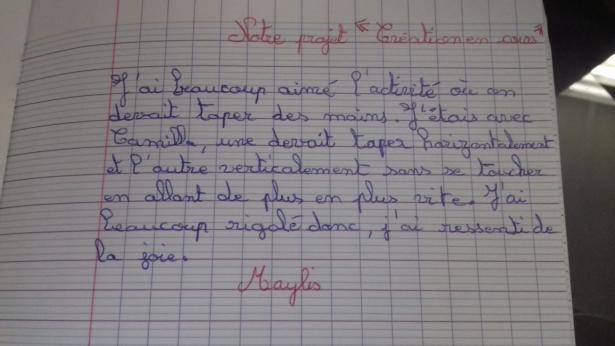 Notre projet "Création en cours"
J'ai beaucoup aimé l'activité où on
devait taper des mains. J'étais avec
Camille, une devait taper horizontalement
et l'autre verticalement sans se toucher
en allant de plus en plus vite. J'ai
beaucoup rigolé donc, j'ai ressenti de
la joie.
Maylis